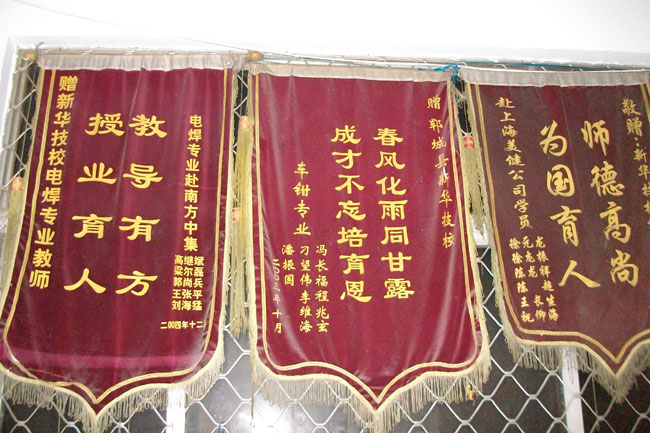 赠新华技校电焊专业教师
教导有方
授业育人
电焊专业赴南方中集
高继斌
梁尔磊
郭尚兵
王张平
刘海猛
二00四年十二
赠 郓城县新华技校
春风化雨同甘露
成才不忘培育恩
车钳专业
冯长福程兆玄
刁望伟李维海
潘振国
二00三年十月
敬赠:新华技
师德高尚
为国育人
赴上海美健公司学员